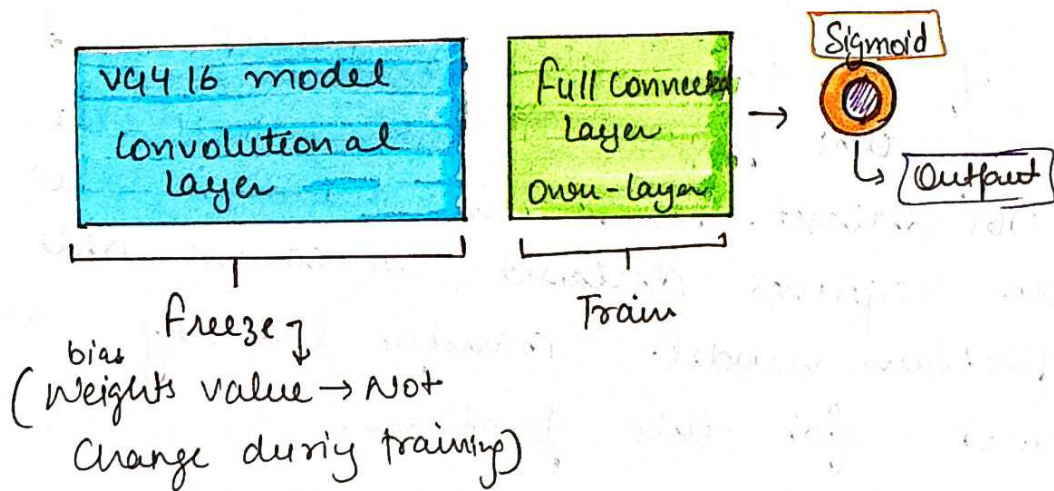 VGG 16 model
Convolutional
Layer
Full Connected
Layer
Own-layer
Sigmoid
Output
Freeze
Train
bias
(Weights value → Not
Change durig training)